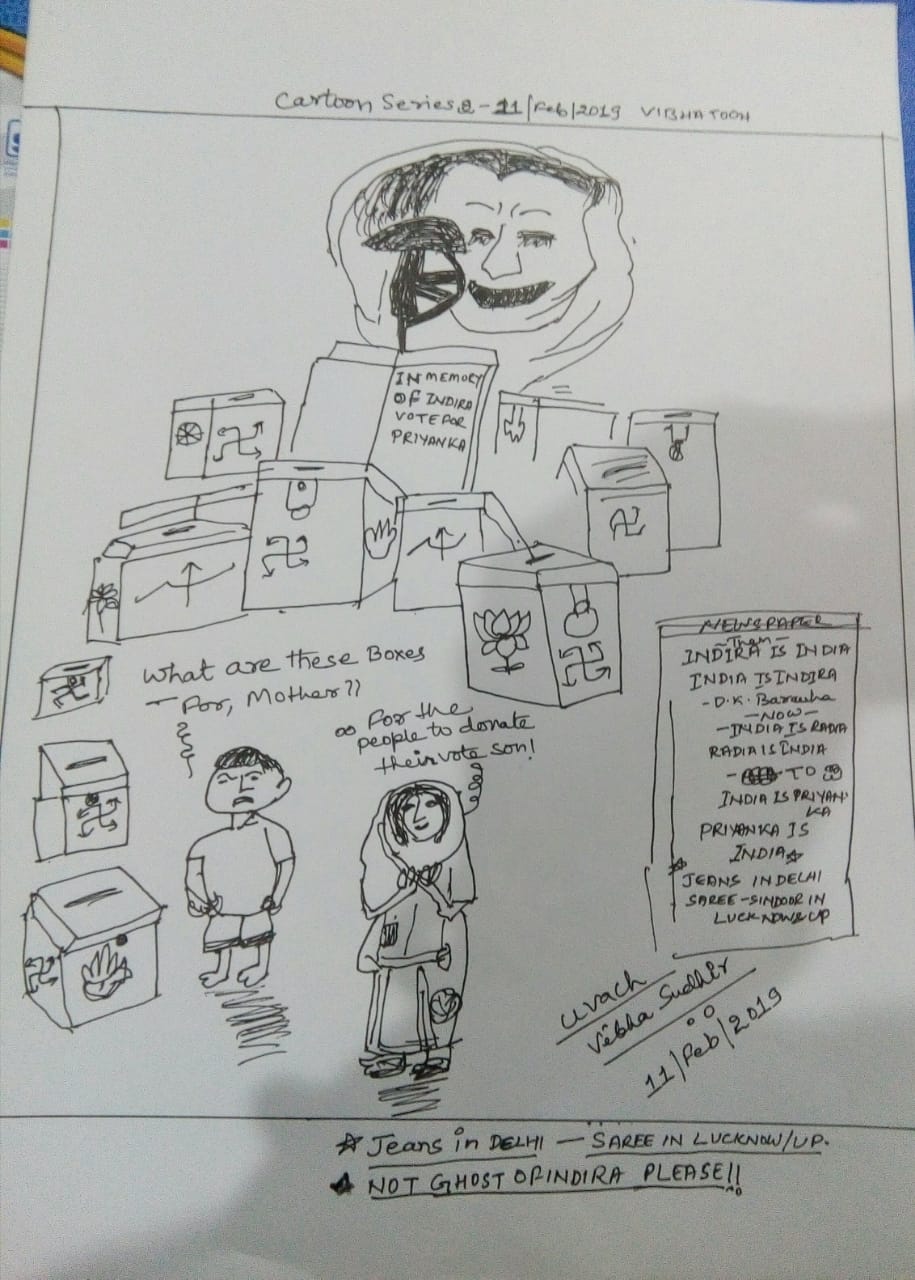 Cartoon Series 8 - 11/Feb/2019 VIBHATOON
IN MEMORY
OF INDIRA
VOTE FOR
PRIYANKA
What are these Boxes
For, Mother??
For the
people to donate
their vote son!
NEWSPAPER
-Then-
INDIRA IS INDIA
INDIA IS INDIRA
- D.K. Barauha
-NOW-
-INDIA IS RADIA
RADIA IS INDIA
TO
INDIA IS PRIYAN-
KA
PRIYANKA IS
INDIA
JEANS IN DELHI
SAREE-SINDOOR IN
LUCKNOW & UP
uvach
Vibha Sudhir
11/Feb/2019
Jeans in DELHI — SAREE IN LUCKNOW/UP.
NOT GHOST OF INDIRA PLEASE!!